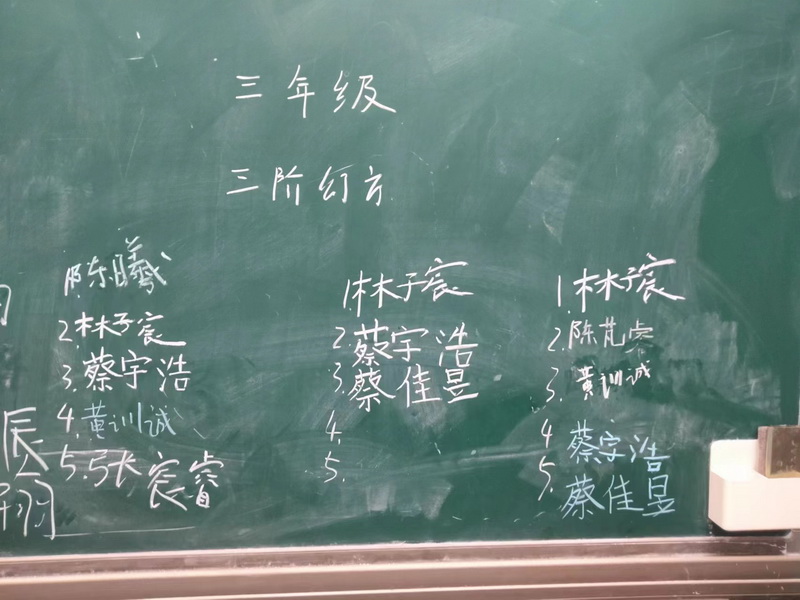 三年级
三阶幻方
陈曦
2.林子宸
3.蔡宇浩
4.黄训诚
5.张宸睿
1林子宸
2.蔡宇浩
3.蔡佳昱
4.
5.
1.林子宸
2.陈芃睿
3.黄训诚
4蔡宇浩
5.蔡佳昱